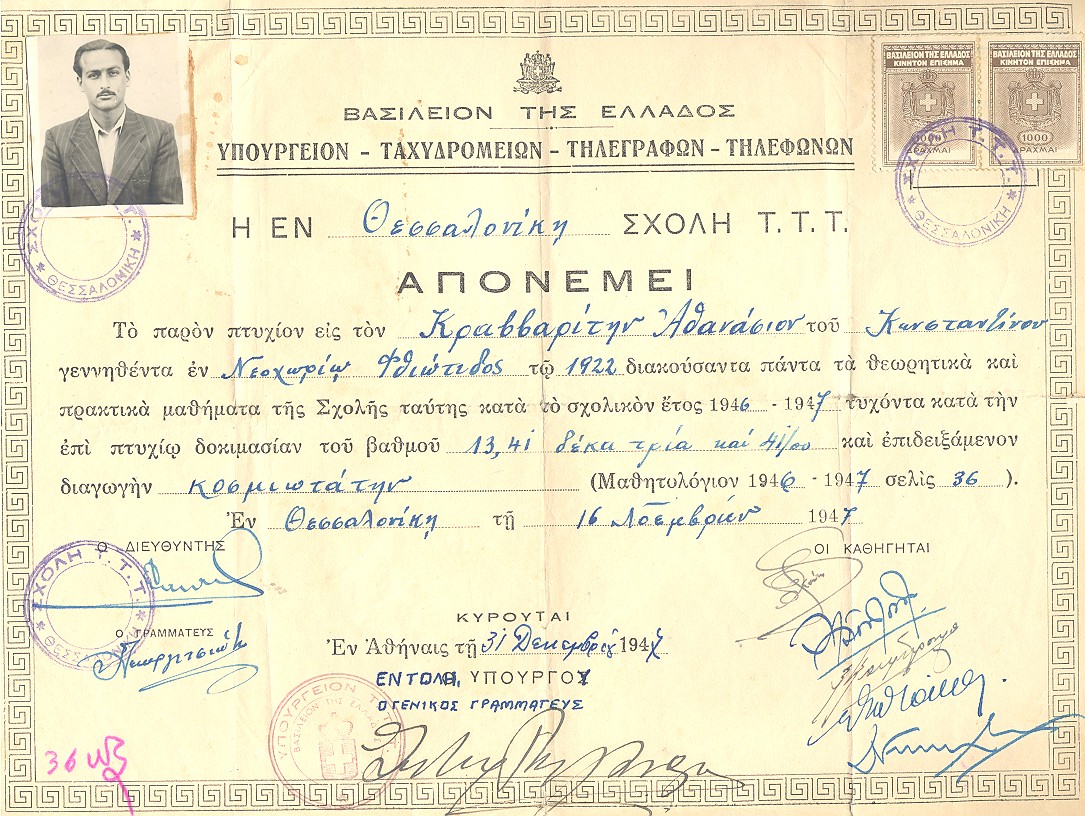 ΒΑΣΙΛΕΙΟΝ ΤΗΣ ΕΛΛΑΔΟΣ
ΥΠΟΥΡΓΕΙΟΝ - ΤΑΧΥΔΡΟΜΕΙΩΝ - ΤΗΛΕΓΡΑΦΩΝ - ΤΗΛΕΦΩΝΩΝ
ΒΑΣΙΛΕΙΟΝ ΤΗΣ ΕΛΛΑΔΟΣ
ΚΙΝΗΤΟΝ ΕΠΙΣΗΜΑ
1000
ΔΡΑΧΜΑΙ
ΒΑΣΙΛΕΙΟΝ ΤΗΣ ΕΛΛΑΔΟΣ
ΚΙΝΗΤΟΝ ΕΠΙΣΗΜΑ
1000
ΔΡΑΧΜΑΙ
ΣΧΟΛΗ Τ. Τ. Τ.
ΘΕΣΣΑΛΟΝΙΚΗ
ΣΧΟΛΗ Τ. Τ. Τ.
ΘΕΣΣΑΛΟΝΙΚΗ
Η ΕΝ Θεσσαλονίκη ΣΧΟΛΗ Τ. Τ. Τ.
ΑΠΟΝΕΜΕΙ
Τὸ παρὸν πτυχίον εἰς τὸν Κραββαρίτην Ἀθανάσιον τοῦ Κωνσταντίνου
γεννηθέντα ἐν Νεοχωρίῳ Φθιώτιδος τῷ 1922 διακούσαντα πάντα τὰ θεωρητικὰ καὶ
πρακτικὰ μαθήματα τῆς Σχολῆς ταύτης κατὰ τὸ σχολικὸν ἔτος 1946 - 1947 τυχόντα κατὰ τὴν
ἐπὶ πτυχίῳ δοκιμασίαν τοῦ βαθμοῦ 13,41 δέκα τρία καί 41/00 καὶ ἐπιδειξάμενον
διαγωγὴν κοσμιωτάτην (Μαθητολόγιον 1946 - 1947 σελὶς 36 ).
Ἐν Θεσσαλονίκη τῇ 16 Νοεμβρίου 1947
Ο ΔΙΕΥΘΥΝΤΗΣ
ΟΙ ΚΑΘΗΓΗΤΑΙ
ΣΧΟΛΗ Τ. Τ. Τ.
Ο ΓΡΑΜΜΑΤΕΥΣ
ΚΥΡΟΥΤΑΙ
Ἐν Ἀθήναις τῇ 31 Δεκεμβρίου 1947
ΕΝΤΟΛΗ, ΥΠΟΥΡΓΟΥ
Ο ΓΕΝΙΚΟΣ ΓΡΑΜΜΑΤΕΥΣ
ΥΠΟΥΡΓΕΙΟΝ
ΒΑΣΙΛΕΙΟΝ ΤΗΣ ΕΛΛΑΔΟΣ
36